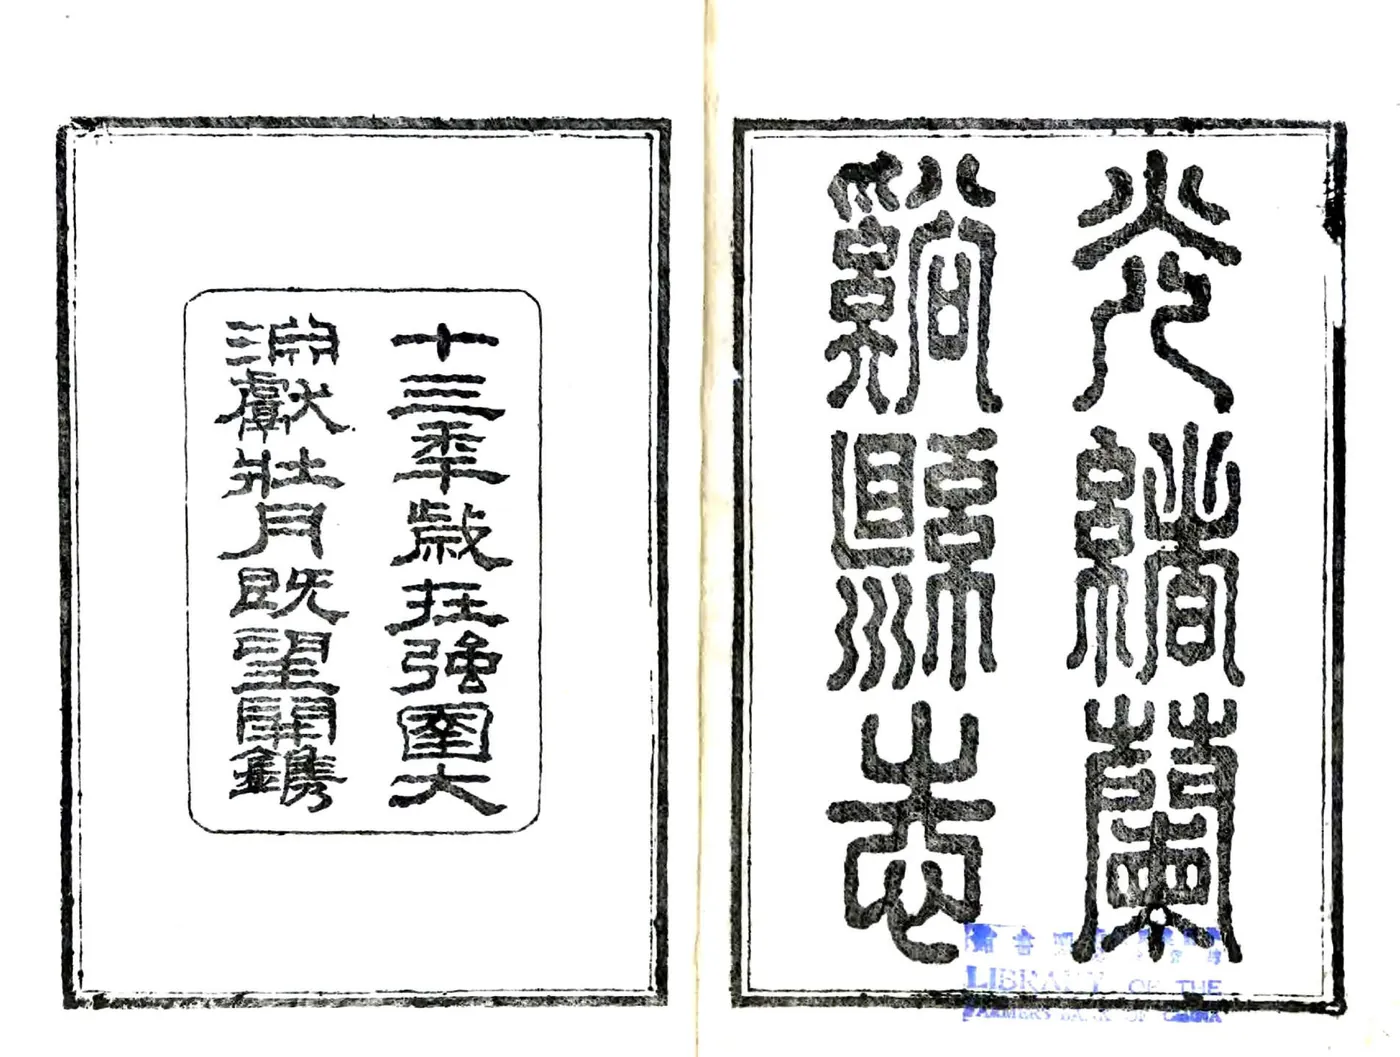 光緒蘭
谿縣志
十三年歲在強圉大
淵獻壯月既望開鐫
LIBRARY OF THE
FARMERS BANK OF CHINA